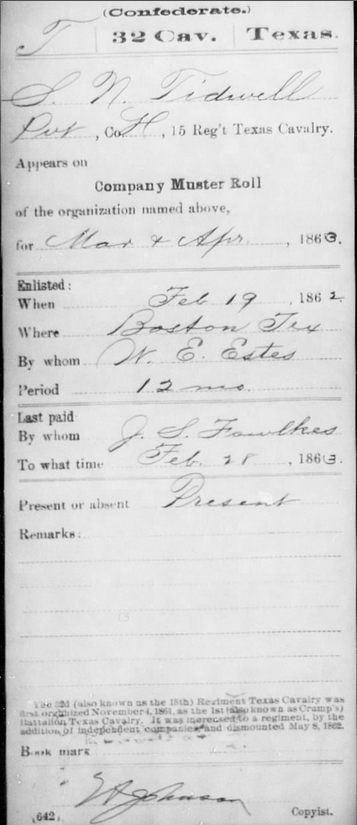 (Confederate.)
T | 32 Cav. | Texas.
S. N. Tidwell
Pvt, Co. H, 15 Reg't Texas Cavalry.
Appears on
Company Muster Roll
of the organization named above,
for Mar & Apr, 1863.
Enlisted:
When Feb 19, 1862.
Where Boston Tex
By whom W. E. Estes
Period 12 mo.
Last paid:
By whom J. S. Fowlkes
To what time Feb. 28, 1863.
Present or absent Present
Remarks:
The 32d (also known as the 15th) Regiment Texas Cavalry was
first organized November 4, 1861, as the 1st (also known as Crump's)
Battalion Texas Cavalry. It was increased to a regiment, by the
addition of independent companies and dismounted May 8, 1862.
Book mark
Johnson
(642) Copyist.